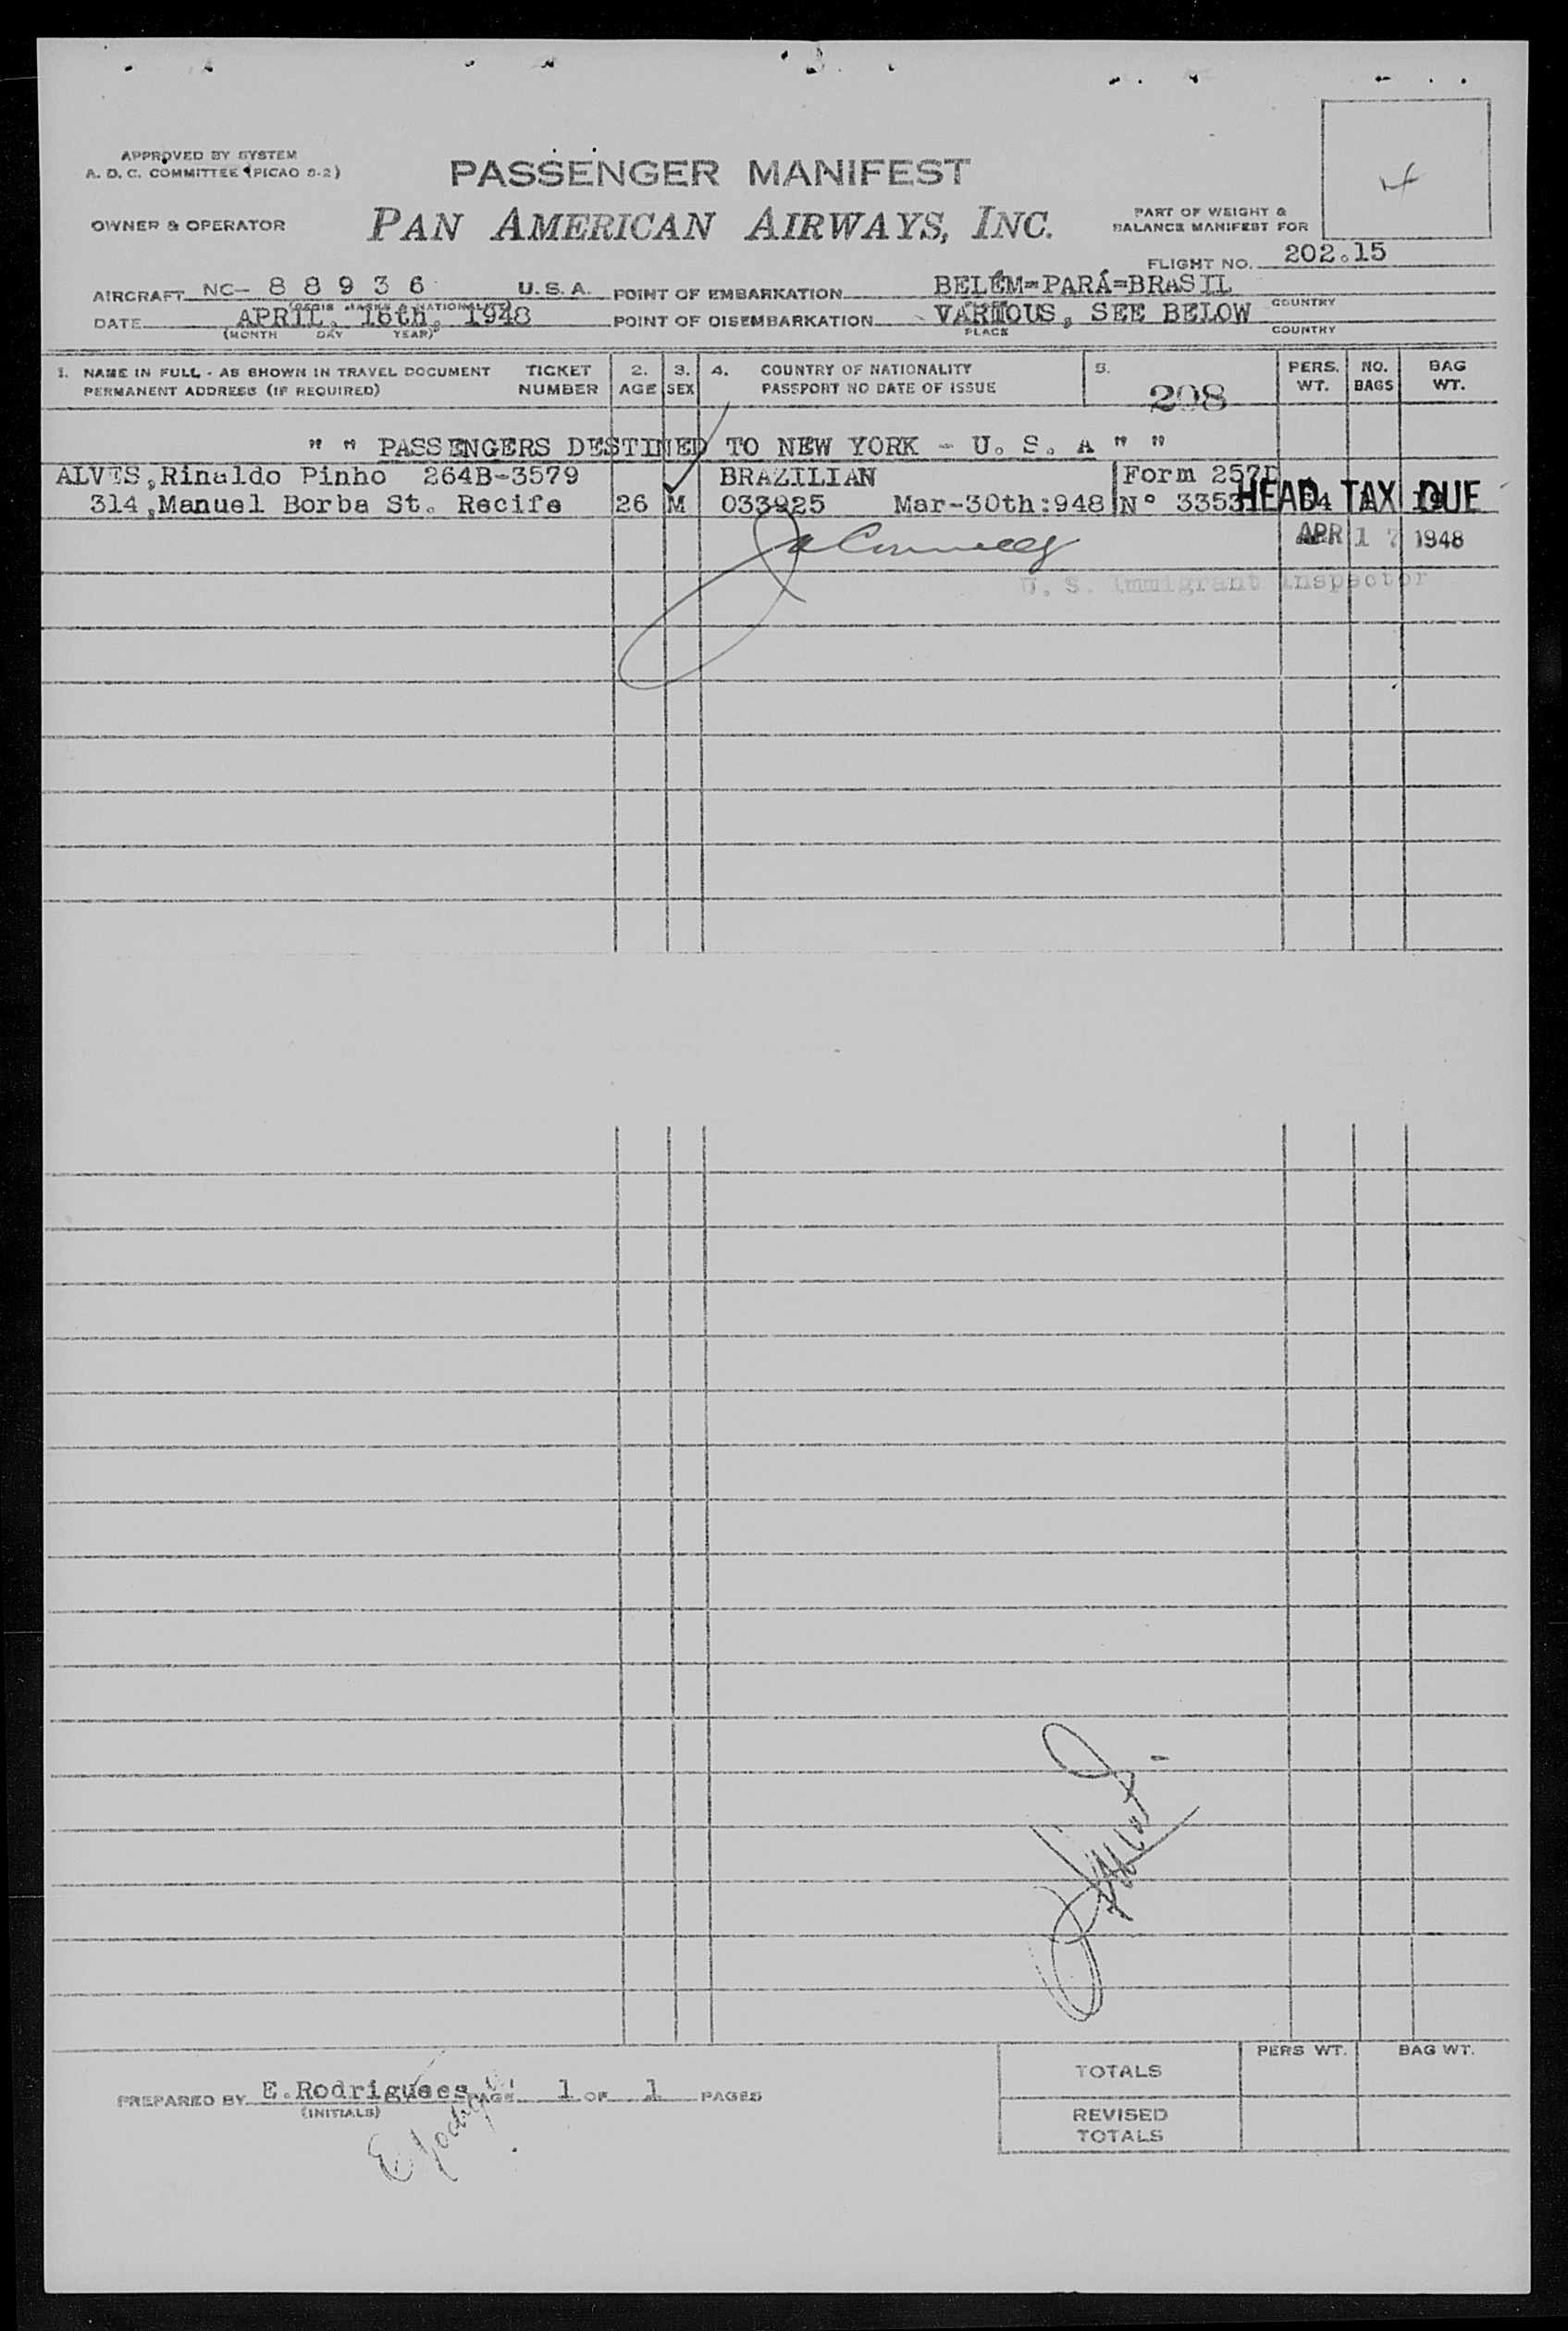 APPROVED BY SYSTEM
A. D. C. COMMITTEE (PICAO S-2)
PASSENGER MANIFEST
OWNER & OPERATOR
PAN AMERICAN AIRWAYS, INC.
PART OF WEIGHT &
BALANCE MANIFEST FOR
FLIGHT NO. 202.15
AIRCRAFT NC- 8 8 9 3 6 U.S.A. POINT OF EMBARKATION BELÉM=PARÁ=BRASIL
(REGIS MARKS & NATIONALITY) COUNTRY
DATE APRIL, 16th, 1948 POINT OF DISEMBARKATION VARIOUS, SEE BELOW
(MONTH DAY YEAR) PLACE COUNTRY
1. NAME IN FULL - AS SHOWN IN TRAVEL DOCUMENT TICKET 2. 3. 4. COUNTRY OF NATIONALITY 5. PERS. NO. BAG
PERMANENT ADDRESS (IF REQUIRED) NUMBER AGE SEX PASSPORT NO DATE OF ISSUE 208 WT. BAGS WT.
" " PASSENGERS DESTINED TO NEW YORK - U. S. A " "
ALVES,Rinaldo Pinho 264B-3579 BRAZILIAN Form 257D
314,Manuel Borba St. Recife 26 M 033925 Mar-30th:948 N° 33531
HEAD TAX DUE
APR 17 1948
U. S. Immigrant Inspector
TOTALS PERS WT. BAG WT.
PREPARED BY E.Rodrigues PAGE 1 OF 1 PAGES
(INITIALS)
REVISED
TOTALS